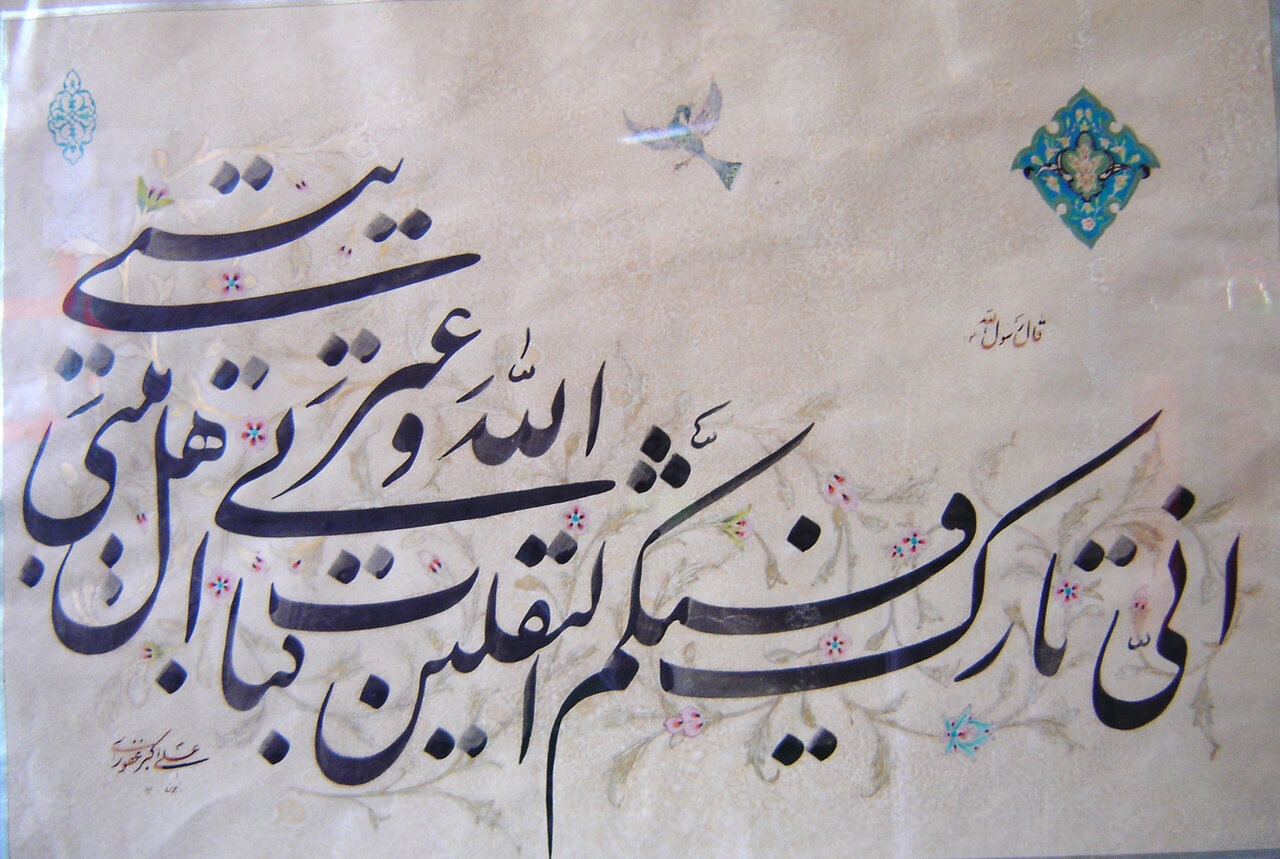 قال رسول الله ص
انّی تارک فیکم الثقلین کتاب الله و عترتی اهل بیتی
علی اکبر غفوری